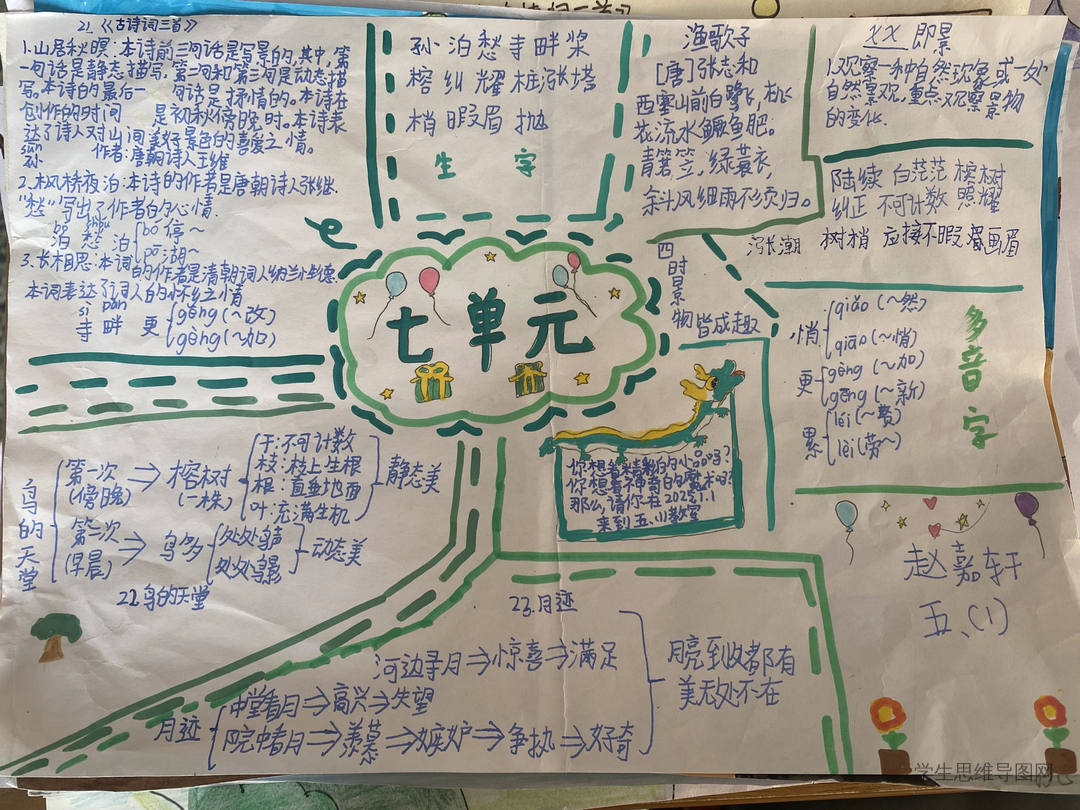 21.《古诗词三首》
1.山居秋暝:本诗前三句话是写景的,其中,第
一句话是静态描写,第二句和第三句是动态描
写。本诗的最后一句话是抒情的。本诗在
创作的时间 是初秋傍晚时。本诗表
达了诗人对山间美好景色的喜爱之情。
sūn
孙 作者:唐朝诗人王维
2.枫桥夜泊:本诗的作者是唐朝诗人张继.
"愁"写出了作者的心情.
bó chóu
泊 愁 泊 bó 停~
pō 湖~
3.长相思:本词的作者是清朝词人纳兰性德.
本词表达了词人的怀乡之情
sì pàn
寺 畔 更 gēng(~改)
gèng(~加)
孙 泊 愁 寺 畔 桨
榕 纠 耀 桩 涨 塔
梢 暇 眉 抛
生 字
渔歌子
[唐]张志和
西塞山前白鹭飞,桃
花流水鳜鱼肥。
青箬笠,绿蓑衣,
斜风细雨不须归。
XX 即景
1.观察一种自然现象或一处
自然景观,重点观察景物
的变化.
陆续 白茫茫 榕树
纠正 不可计数 照耀
涨潮 树梢 应接不暇 眉画眉
七单元
四时景物皆成趣
多音字
悄 qiǎo(~然)
qiāo(~悄)
更 gèng(~加)
gēng(~新)
累 léi(~赘)
lèi(劳~)
你想看精彩的小品吗?
你想看神奇的魔术吗?
那么,请你在2025.1.1
来到五.(1)教室
鸟的天堂
第一次(傍晚)⇒榕树(一株)
干:不可计数
枝:枝上生根
根:直垂地面
叶:充满生机
静态美
第二次(早晨)⇒鸟多
处处鸟声
处处鸟影
动态美
22.鸟的天堂
23.月迹
月迹
中堂看月⇒高兴⇒失望
院中看月⇒羡慕⇒嫉妒⇒争执⇒好奇
河边寻月⇒惊喜⇒满足
月亮到收都有
美无处不在
赵嘉轩
五、(1)
学生思维导图网